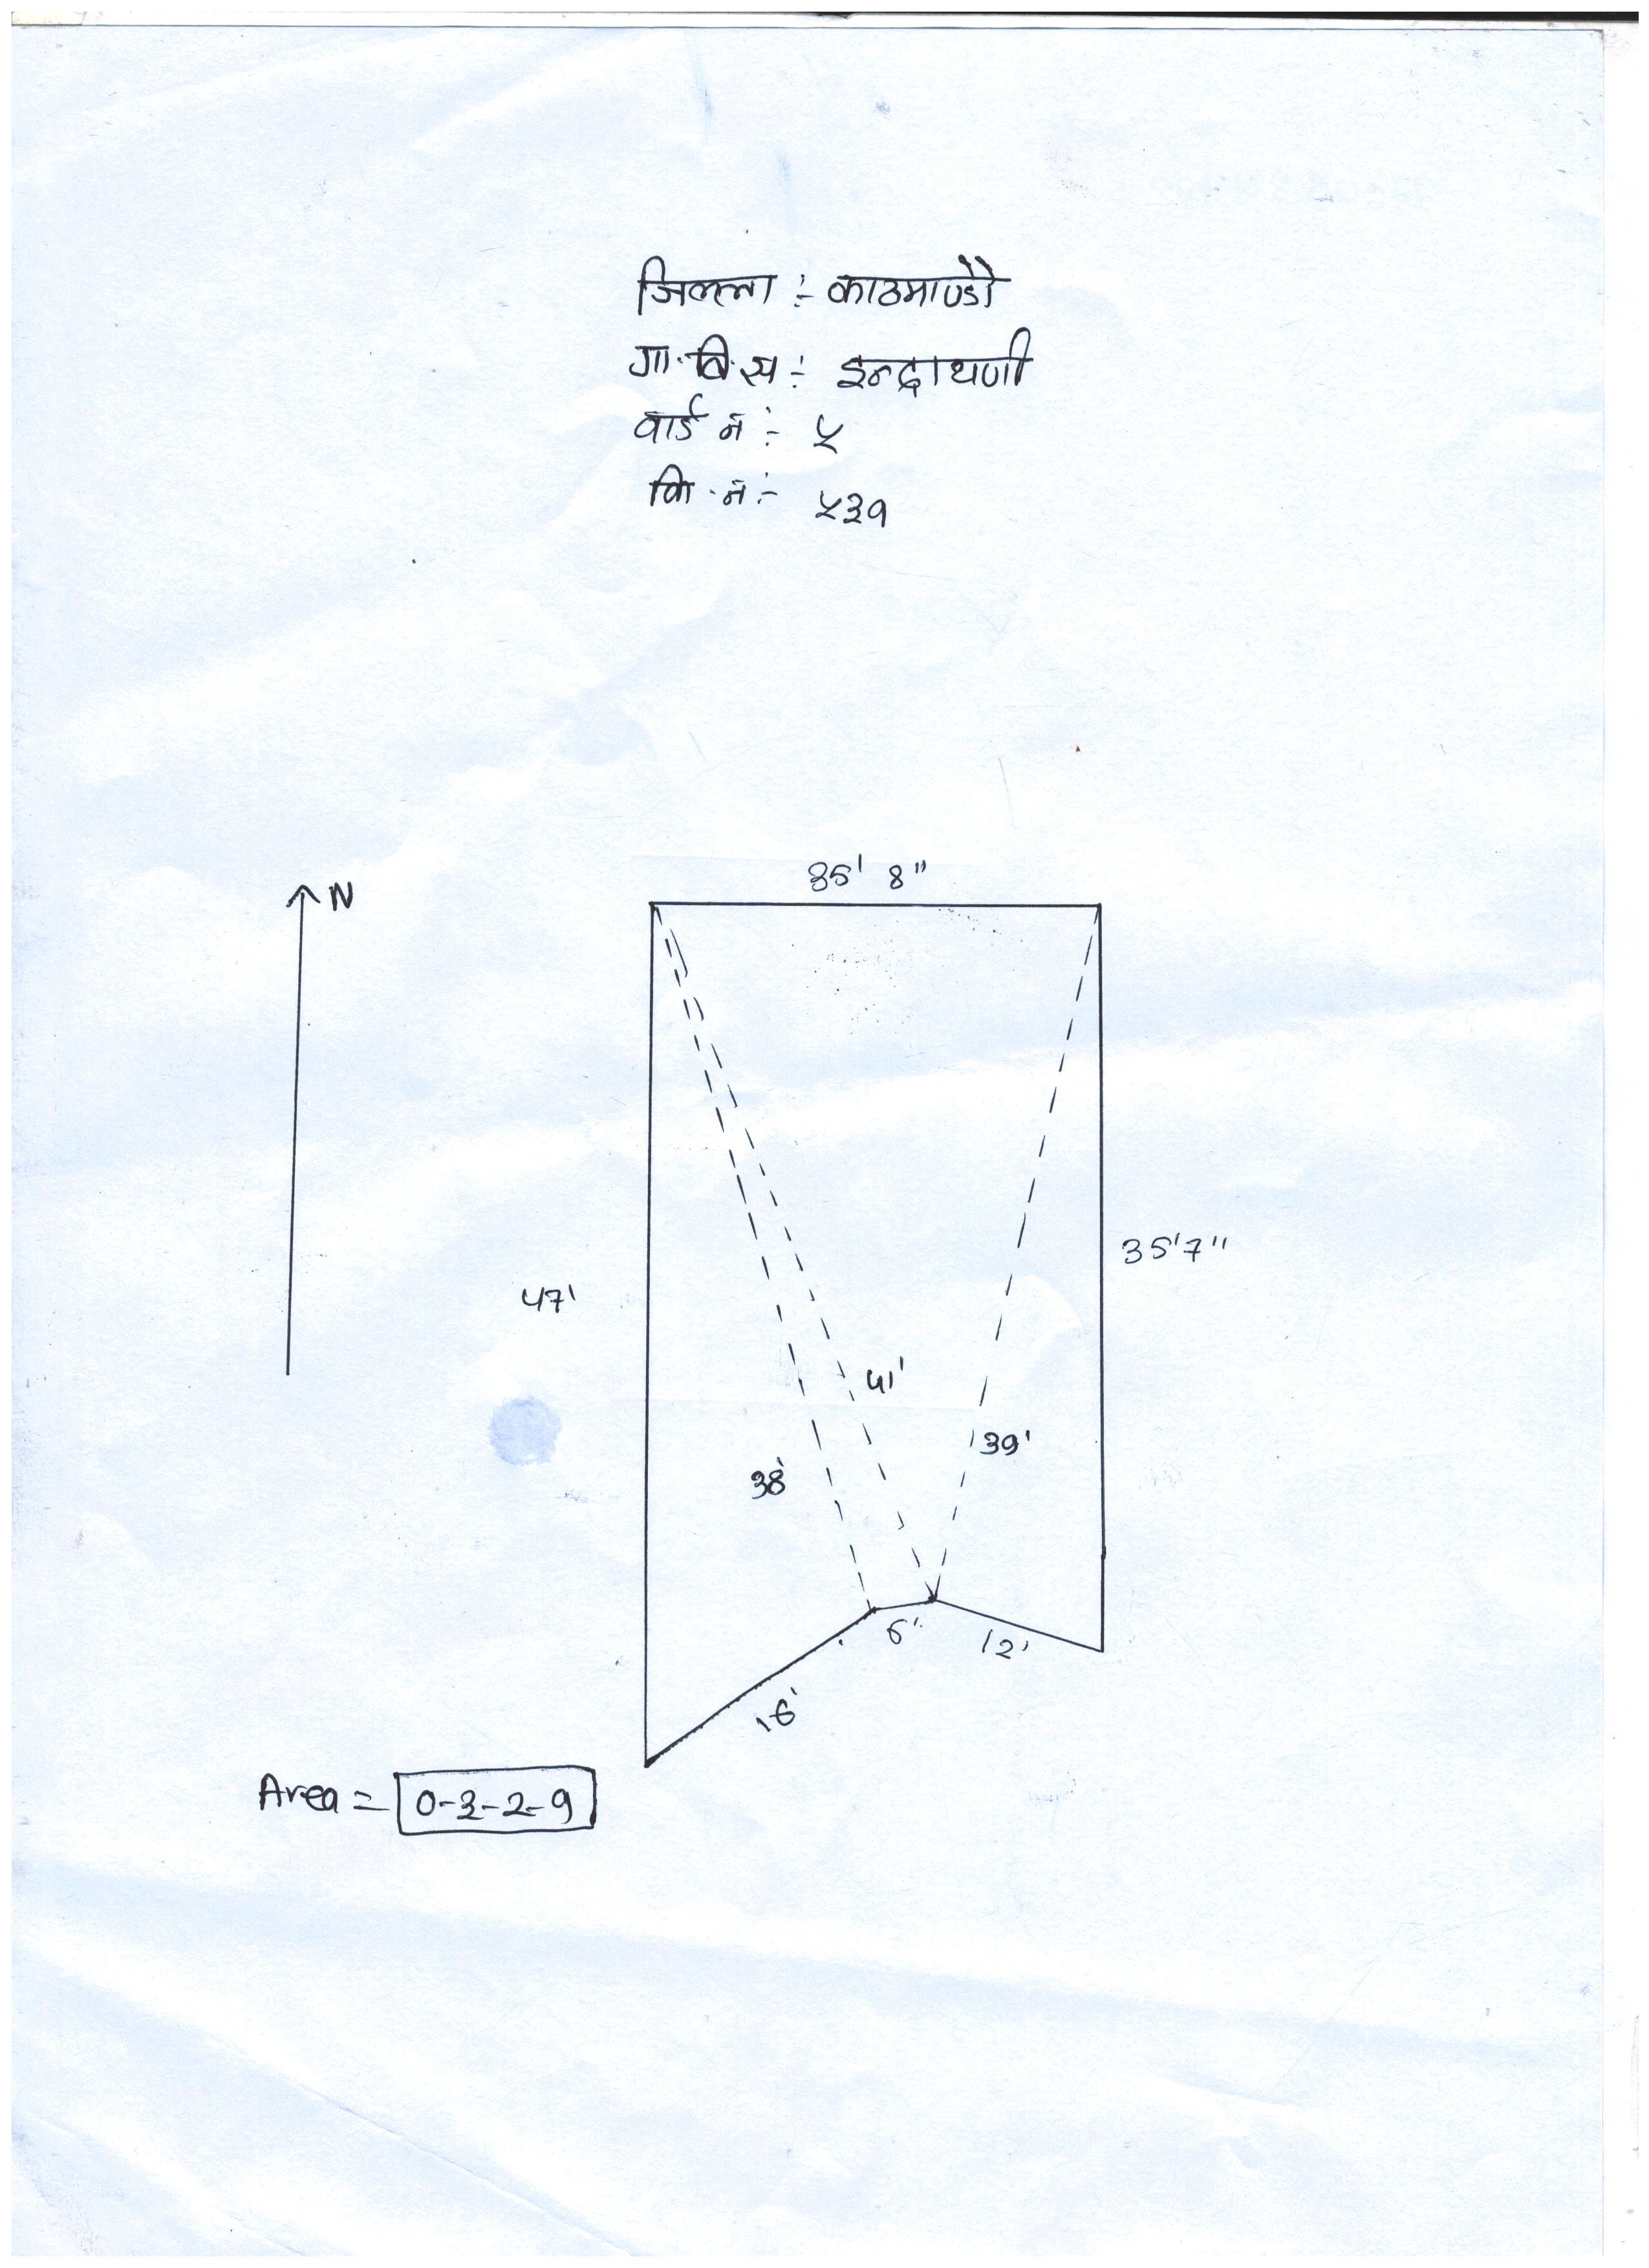 जिल्ला :- काठमाण्डौ
गा.वि.स :- इन्द्रायणी
वार्ड नं :- ५
कि.नं :- ५३१
35' 8"
N
35'7"
47'
41'
39'
38'
6'
12'
16'
Area = 0-3-2-9